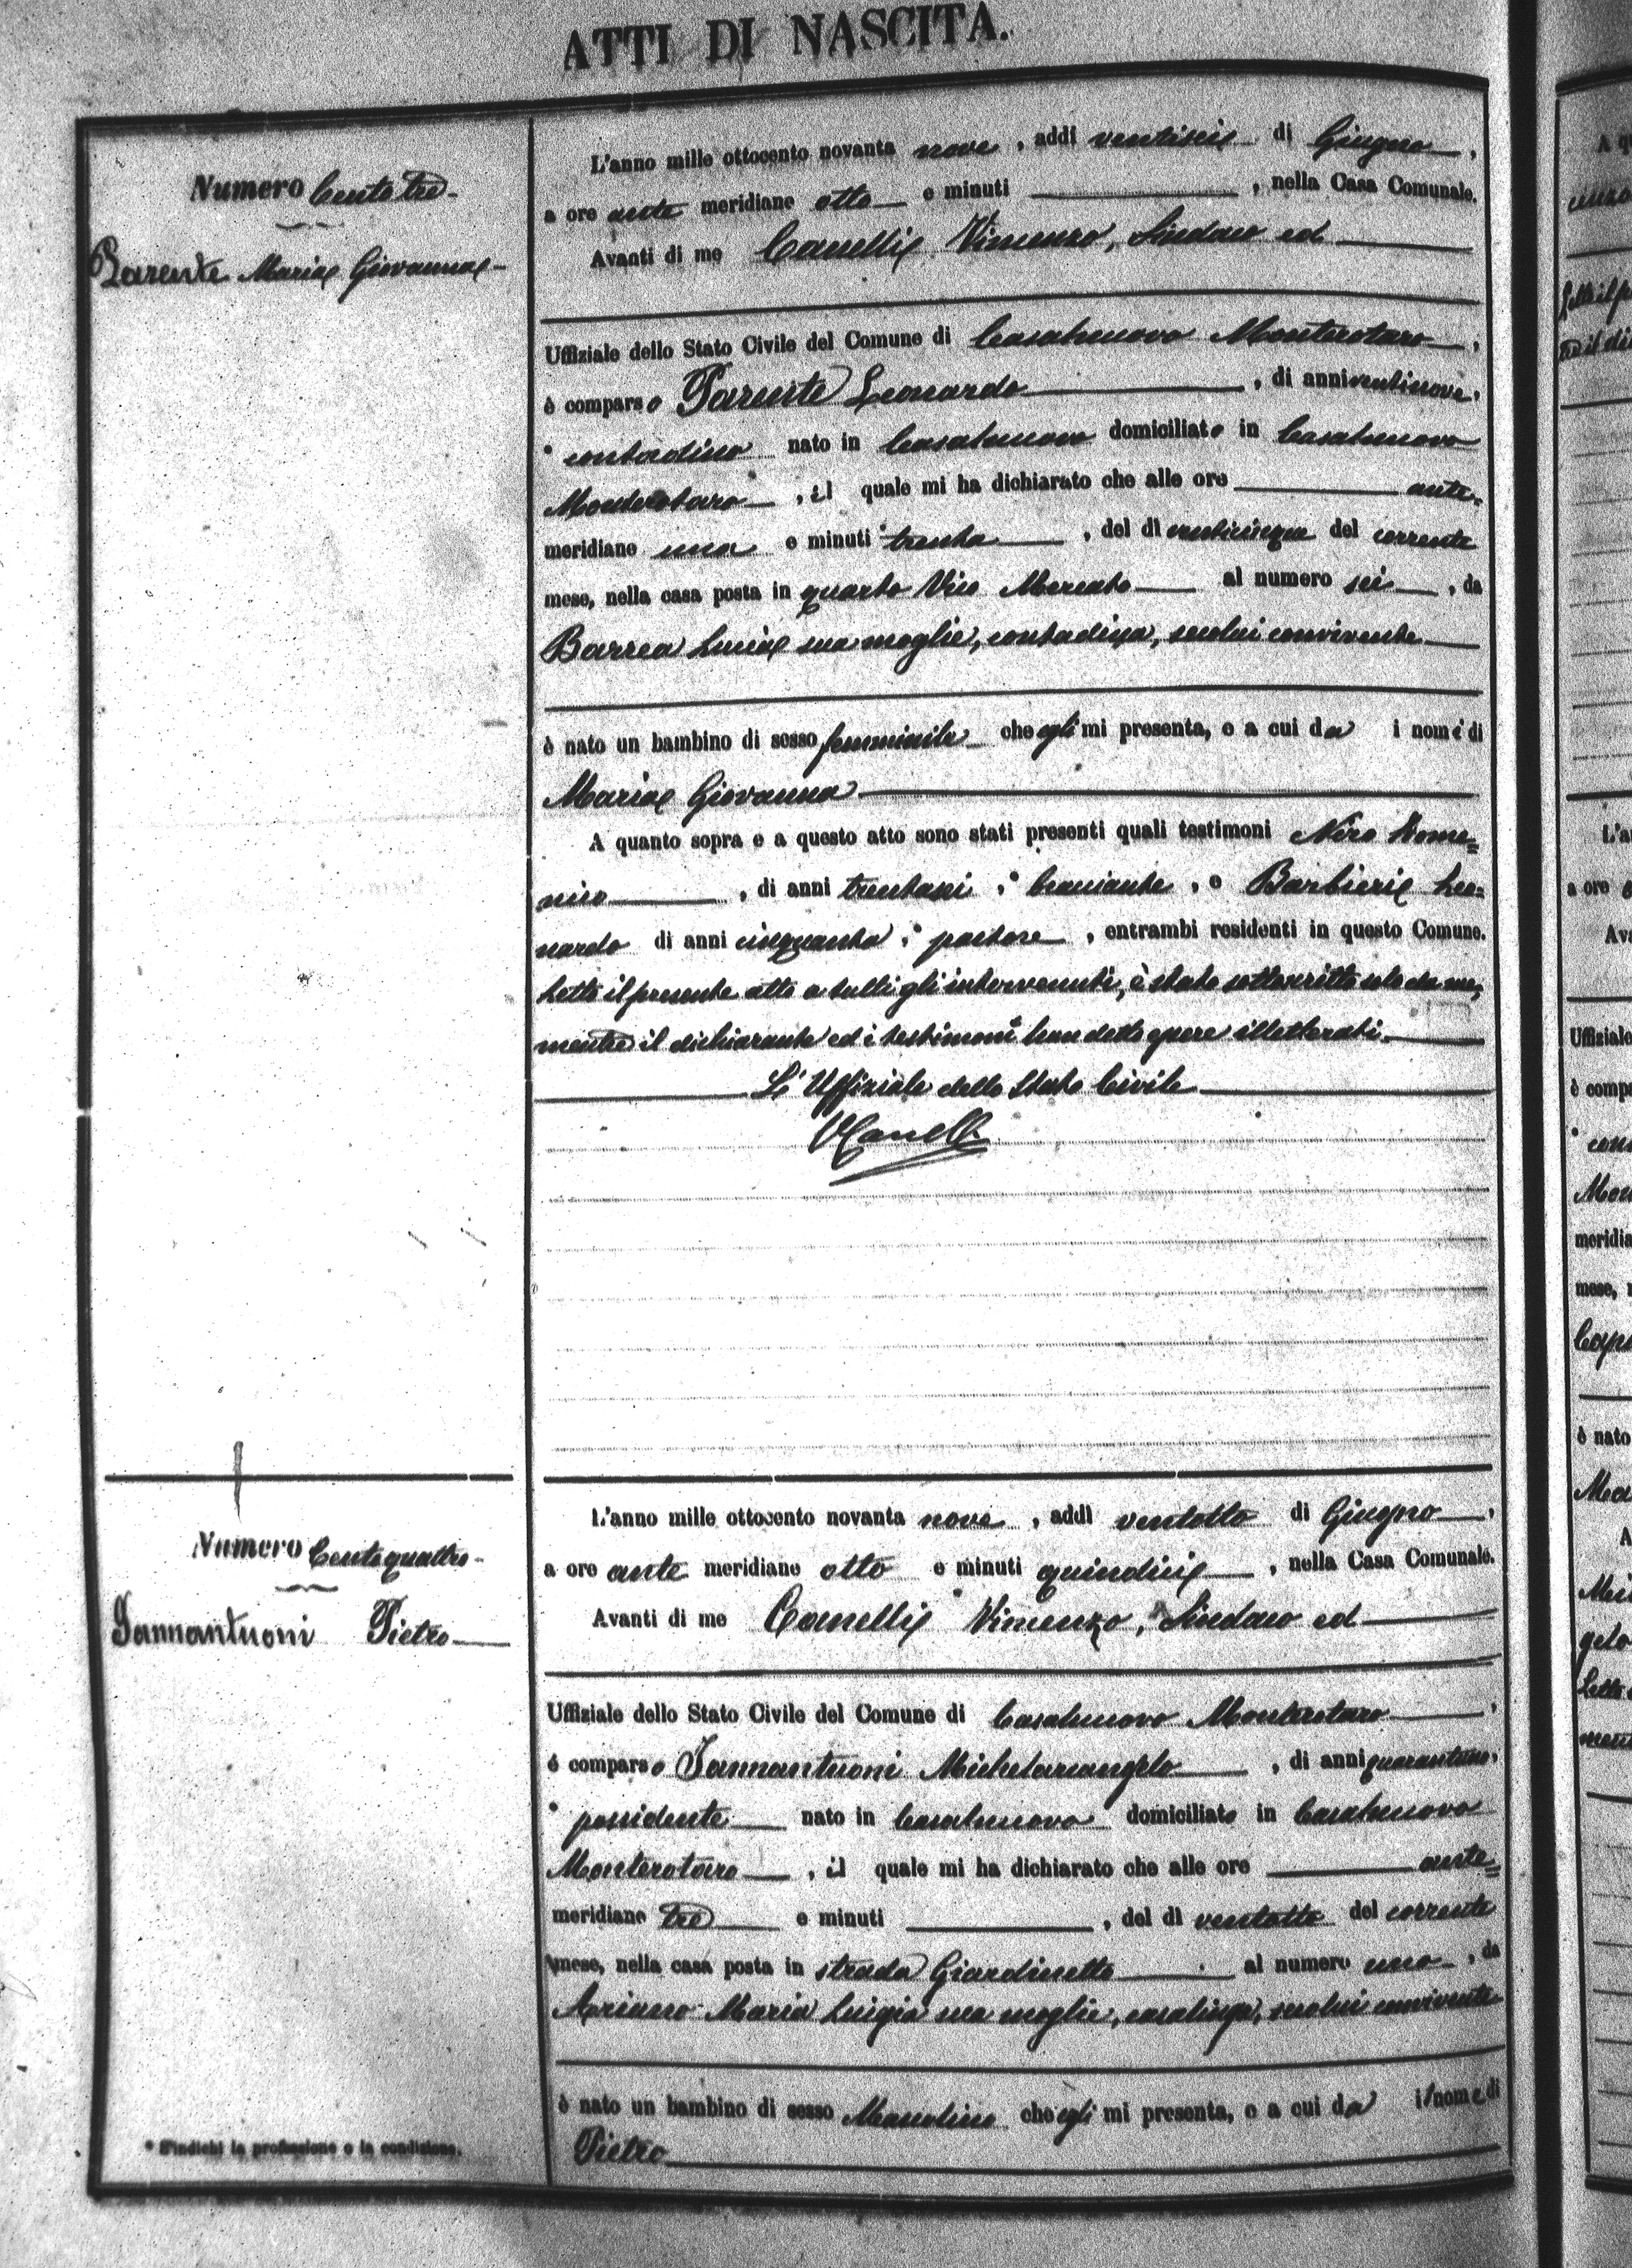 ATTI DI NASCITA.
Numero Centotre
Parente Maria Giovanna
L'anno mille ottocento novanta nove, addì ventisei di Giugno,
a ore ante meridiane otto e minuti , nella Casa Comunale.
Avanti di me Canelli Vincenzo, Sindaco ed
Uffiziale dello Stato Civile del Comune di Casalnuovo Monterotaro,
è comparso Parente Leonardo, di anni ventinove,
* contadino nato in Casalnuovo domiciliato in Casalnuovo
Monterotaro, il quale mi ha dichiarato che alle ore ante=
meridiane una e minuti trenta, del dì venticinque del corrente
mese, nella casa posta in quarto Vico Mercato al numero sei, da
Barrea Lucia sua moglie, contadina, secolui convivente
è nato un bambino di sesso femminile che egli mi presenta, e a cui da i nomi di
Maria Giovanna
A quanto sopra e a questo atto sono stati presenti quali testimoni Nero Dome=
nico, di anni trentasei, * bracciante, e Barbieri Leo=
nardo di anni cinquanta, * pastore, entrambi residenti in questo Comune.
Letto il presente atto a tutti gli intervenuti, è stato sottoscritto solo da me,
mentre il dichiarante ed i testimoni han detto essere illetterati.
L'Uffiziale dello Stato Civile
VCanelli
Numero Centoquattro
Iannantuoni Pietro
L'anno mille ottocento novanta nove, addì ventotto di Giugno,
a ore ante meridiane otto e minuti quindici, nella Casa Comunale.
Avanti di me Canelli Vincenzo, Sindaco ed
Uffiziale dello Stato Civile del Comune di Casalnuovo Monterotaro,
è comparso Iannantuoni Michelarcangelo, di anni quarantuno,
* possidente nato in Casalnuovo domiciliato in Casalnuovo
Monterotaro, il quale mi ha dichiarato che alle ore ante=
meridiane tre e minuti , del dì ventotto del corrente
mese, nella casa posta in strada Giardinetto al numero uno, da
Adriano Maria Luigia sua moglie, casalinga, secolui convivente
è nato un bambino di sesso Mascolino che egli mi presenta, e a cui da il nome di
Pietro
* S'indichi la professione o la condizione.